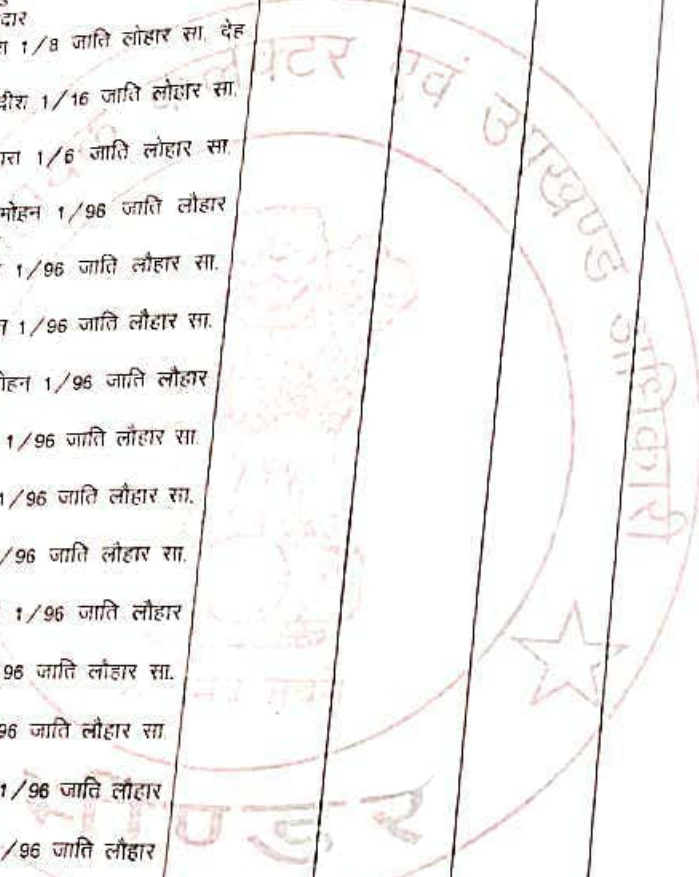 दार
1/8 जाति लोहार सा. देह
1/16 जाति लोहार सा.
1/6 जाति लोहार सा.
मोहन 1/96 जाति लौहार
1/96 जाति लौहार सा.
1/96 जाति लौहार सा.
1/96 जाति लौहार
1/96 जाति लौहार सा.
1/96 जाति लौहार सा.
/96 जाति लौहार सा.
1/96 जाति लौहार
96 जाति लौहार सा.
96 जाति लौहार सा
1/96 जाति लौहार
/96 जाति लौहार
एवं उपखण्ड अधिकारी